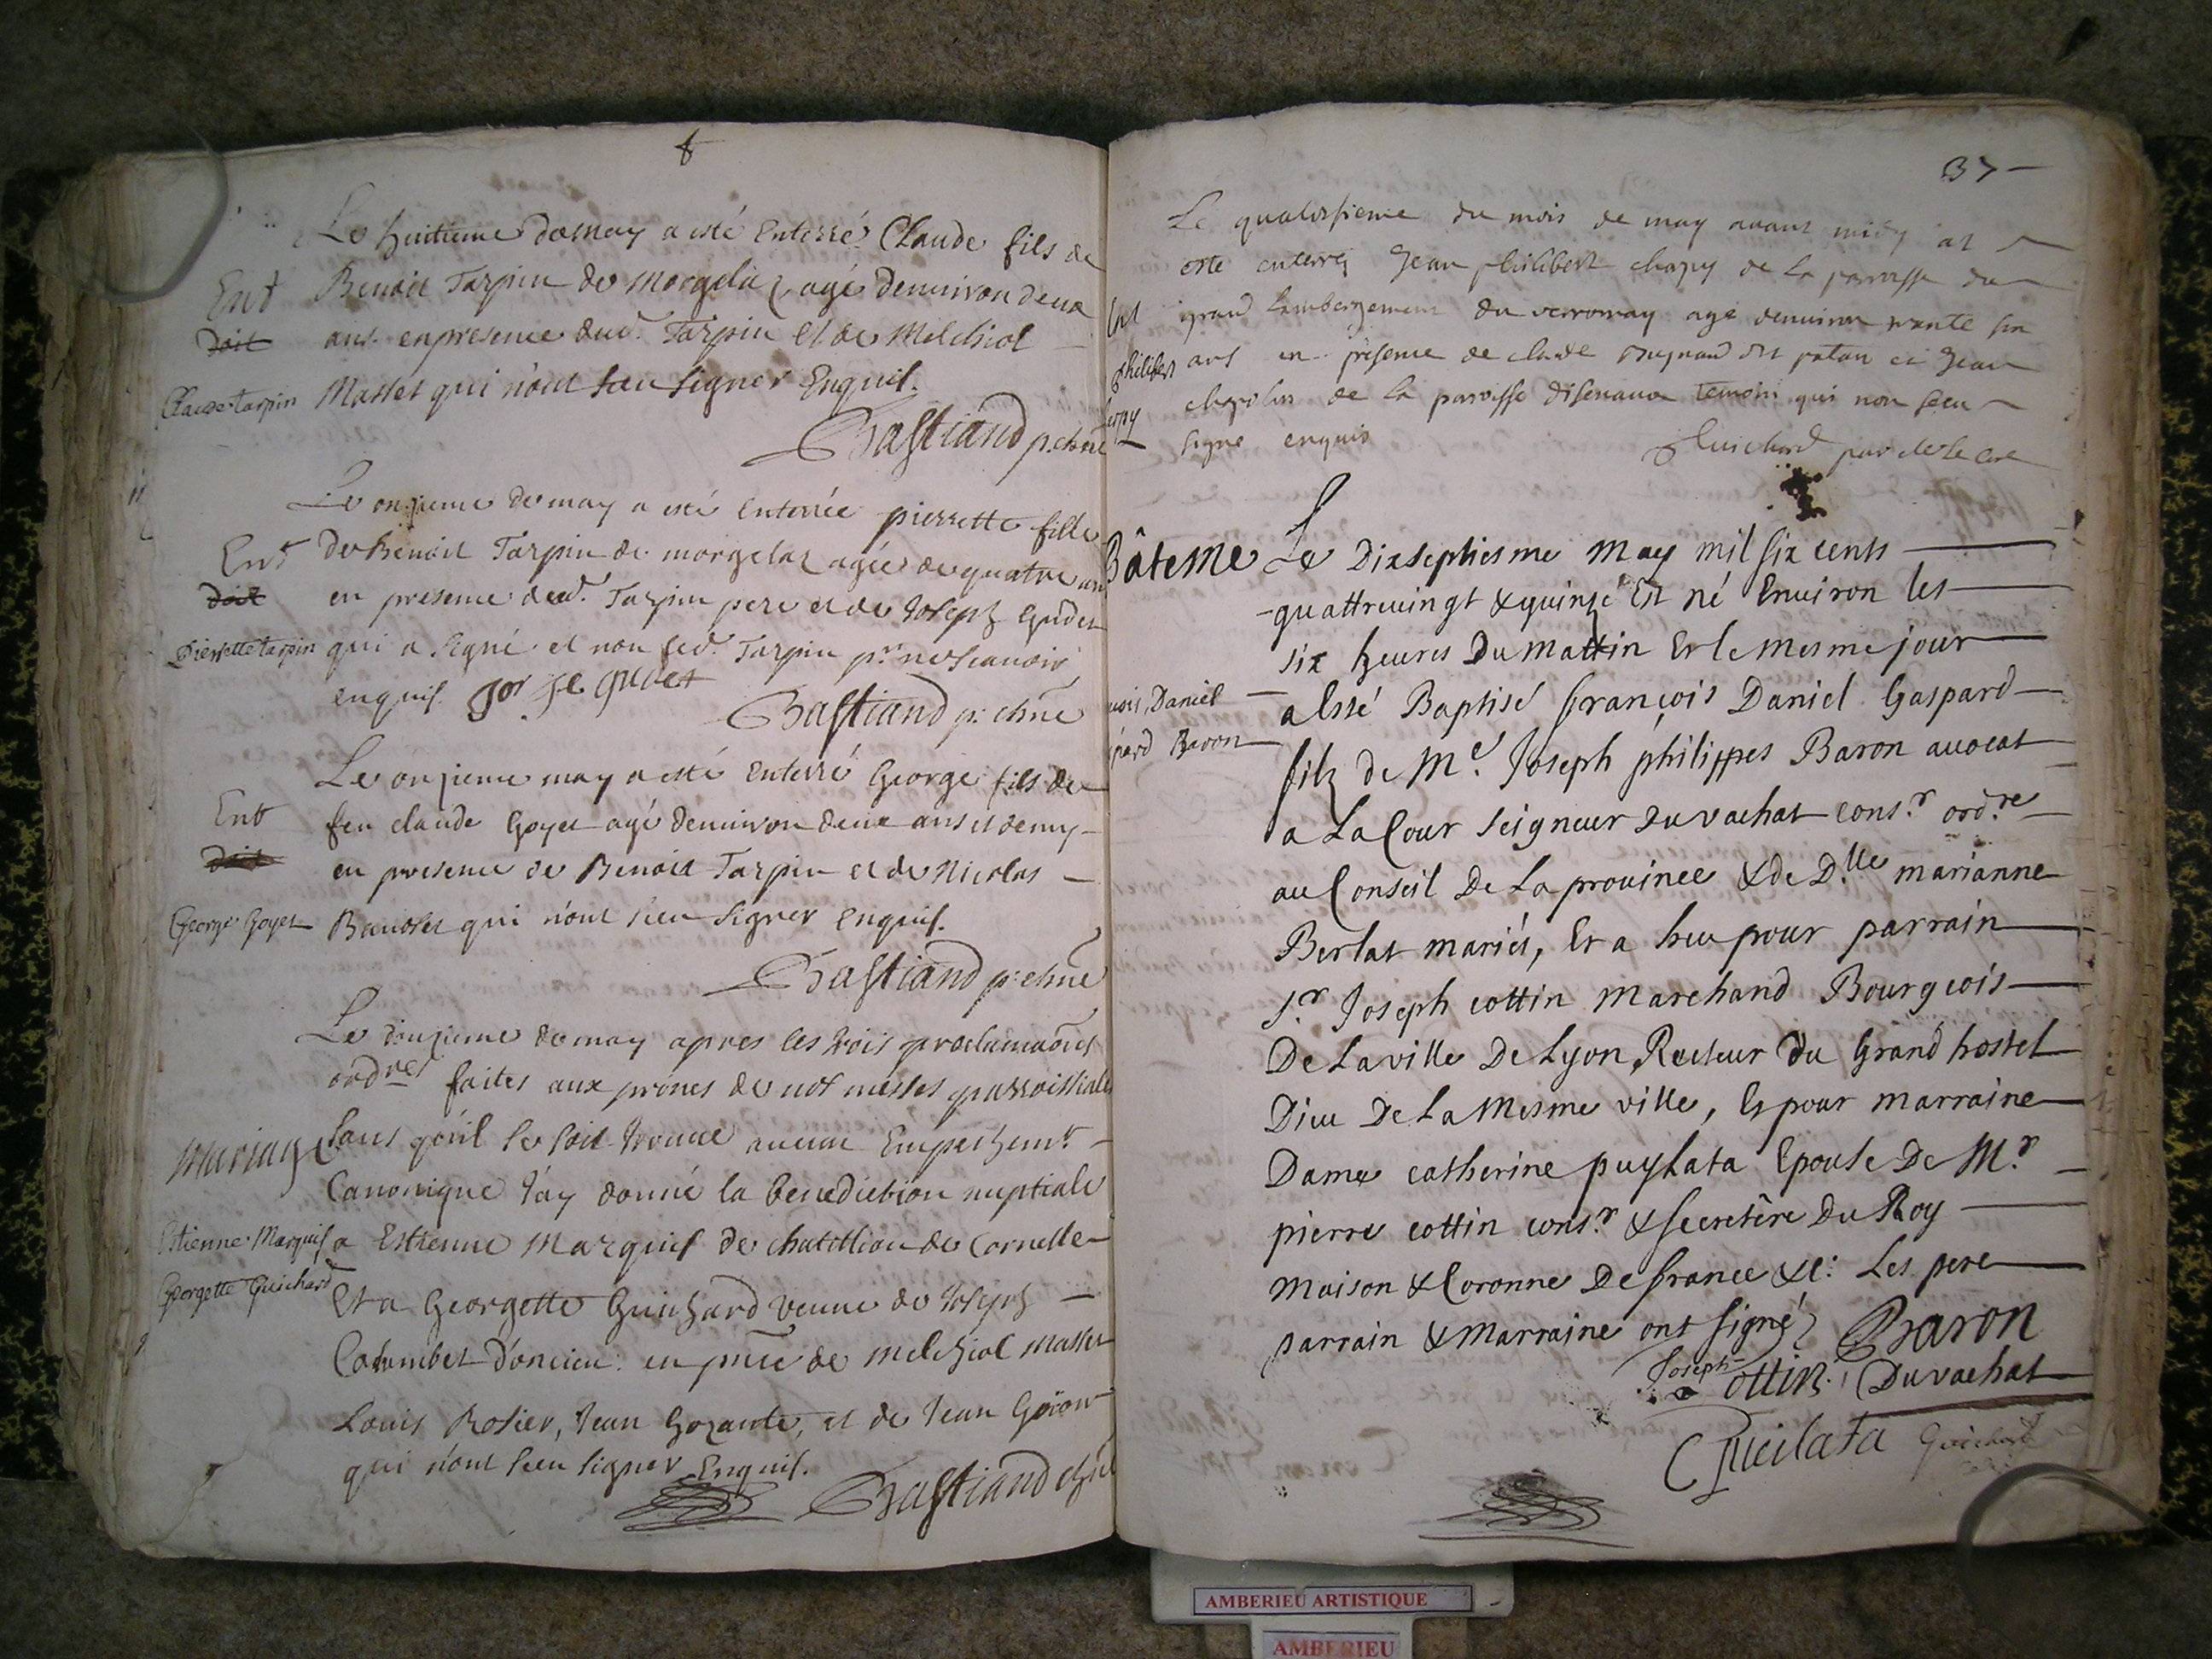 Le huitieme de may a esté Enterré Claude fils de
Benoit Tarpin de Morgelaz agé denuiron deux
ans. en presence dud. Tarpin et de Melchiol
Masset qui n'ont sceu signer Enquis.
Ent
doit
Claude tarpin
Bastiand p. chne
Le onzieme de may a esté Enterrée pierrette fille
de Benoit Tarpin de morgelaz agée de quatre ans
en presence dud. Tarpin pere et de Joseph Gudet
qui a signé et non led. Tarpin pr. ne scauoir
enquis. Jor Je gudet
Ent
doit
Pierrette tarpin
Bastiand p. chne
Le onzieme may a esté Enterré George fils de
feu claude Goyet agé denuiron deux ans et demy
en presence de Benoit Tarpin et de Nicolas
qui n'ont sceu signer enquis.
Ent
doit
George Goyet
Bastiand p. chne
Le douzieme de may apres les trois proclamaons
ordres faites aux prônes de nos messes parroissiales
sans qu'il se soit trouué aucun Empechemt.
Canonique J'ay donné la benediction nuptiale
a Estienne Marquis de chatillion de Cornelle
Et a Georgette Guichard veuue de Joseph
Columbet d'oncieu: en pnce de melchiol masset
Louis Rosier, Jean Gozante, et de Jean
qui n'ont sceu signer Enquis.
Mariage
Estienne Marquis
Georgette Guichard
Bastiand chne
37
Le quatorsieme du mois de may auant midy at
este enterrez Jean philibert chapuy de la paroisse du
grand Lambergement du verromay age denuiron trante six
ans en presence de claude dit patan et Jean
de la paroisse disenaue temoin qui non sceu
signe enquis
Ent
philibert
Guichard
Bâteme
Le Dixseptiesme may mil six cents
quattreuingt & quinze Est né Enuiron les
six heures Du mattin Et le mesme jour
a Esté Baptisé françois Daniel Gaspard
filz de Me. Joseph philippes Baron auocat
a La Cour seigneur du vachat consr. ordre
au Conseil De La prouince & de Dlle marianne
Berlat mariés, Et a heu pour parrain
Sr. Joseph cottin Marchand Bourgeois
De La ville De Lyon Recteur du Grand hostel
Dieu De La Mesme ville, Et pour marraine
Dame catherine puylata Epouse De Mr.
pierre cottin consr. & secretêre Du Roy
Maison & Coronne De france &c: Les pere
parrain & Marraine ont signéz
Daniel
Baron
Baron
Duvachat
Joseph Cottin
C Pueilata
Guichard
AMBERIEU ARTISTIQUE
AMBERIEU